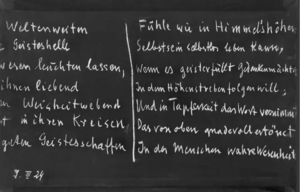 Weltenweiten
Geisteshelle
leuchten lassen,
ihnen liebend
Weisheitwebend
in ihren Kreisen
guten Geistesschaffen
Fühle wie in Himmelshöhen
Selbstsein selbstlos leben kann,
wenn es geisterfüllt Gedankenmächten
In dem Höhenstreben folgen will,
Und in Tapferkeit das Wort vernimmt
Das von oben gnadevoll ertönet
In der Menschen wahre Wesenheit